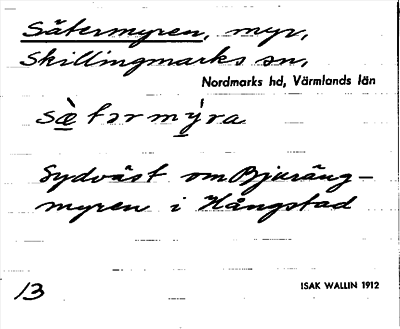 Sätermyren, myr,
Skillingmarks sn,
Nordmarks hd, Värmlands län
sè̱tərmý̱ra
Sydväst om Bjuräng-
myren i Hångstad
13
ISAK WALLIN 1912